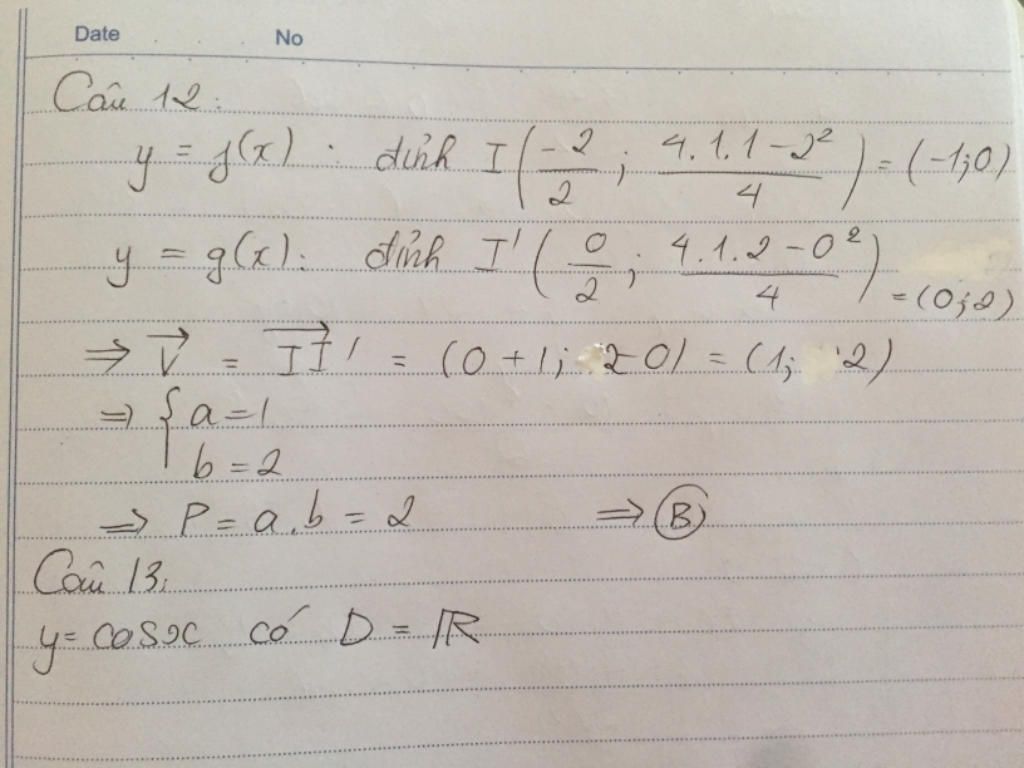 Date No
Câu 12:
y = f(x) : đỉnh I(-2/2 ; (4.1.1-2²)/4) = (-1;0)
y = g(x): đỉnh I'(0/2 ; (4.1.2-0²)/4) = (0;2)
⇒ V⃗ = II'⃗ = (0+1; 2-0) = (1; 2)
⇒ { a=1
b=2
⇒ P = a.b = 2 ⇒ (B)
Câu 13:
y= cosx có D = ℝ